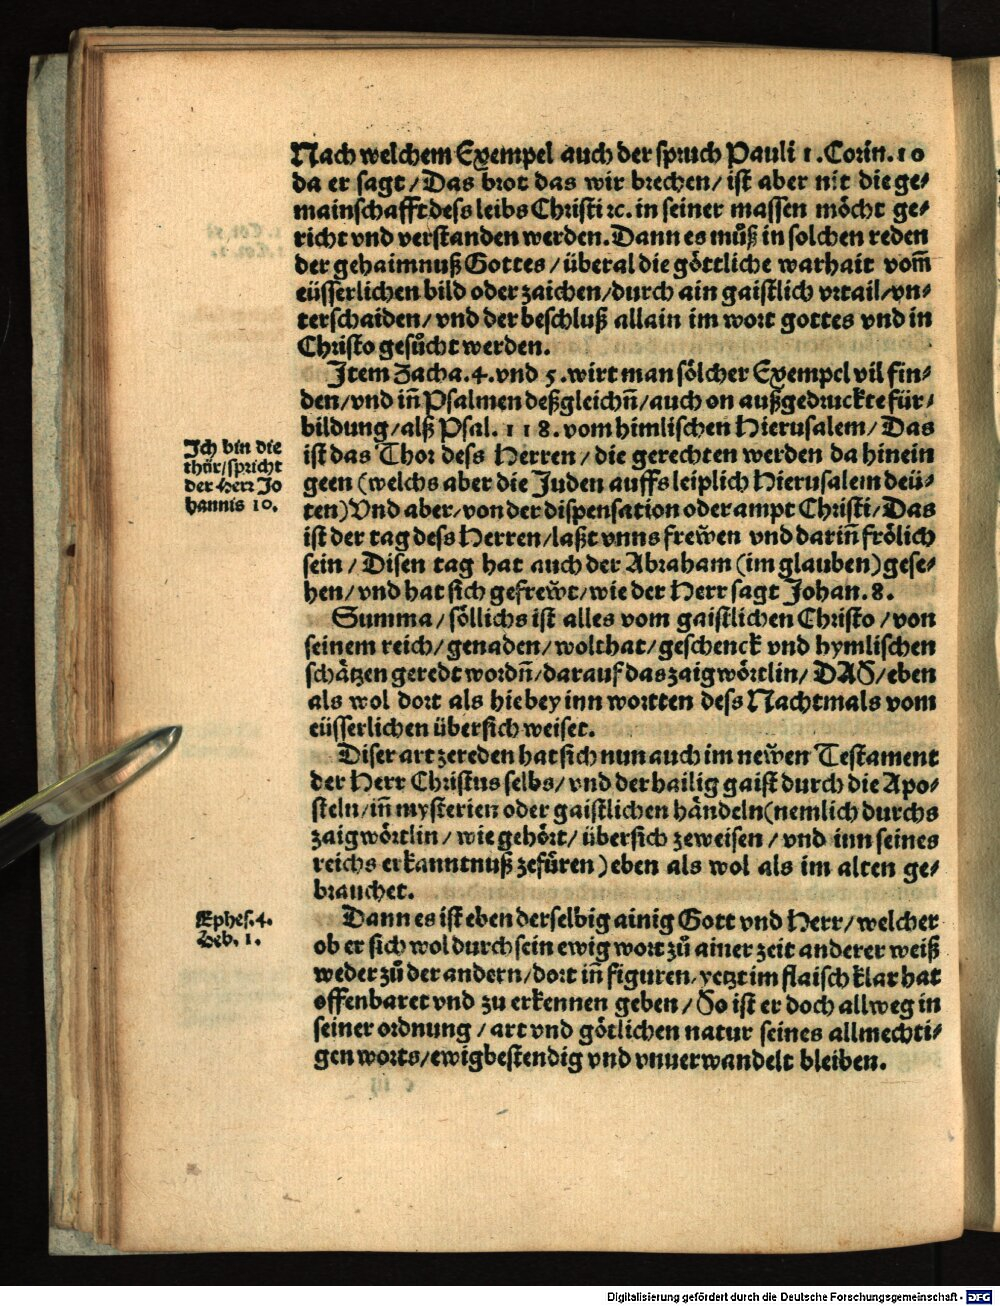 Nach welchem Exempel auch der spruch Pauli 1. Corin. 10
da er sagt / Das brot das wir brechen / ist aber nit die ge⸗
mainschafft dess leibs Christi ꝛc. in seiner massen möcht ge⸗
richt vnd verstanden werden. Dann es můß in solchen reden
der gehaimnuß Gottes / überal die göttliche warhait vom̄
eüsserlichen bild oder zaichen / durch ain gaistlich vrtail / vn⸗
terschaiden / vnd der beschluß allain im wort gottes vnd in
Christo gesůcht werden.
Item Zacha. 4. vnd 5. wirt man sölcher Exempel vil fin⸗
den / vnd in̄ Psalmen deßgleichn̄ / auch on außgedruckte für⸗
bildung / alß Psal. 118. vom himlischen Hierusalem / Das
ist das Thor dess Herren / die gerechten werden da hinein
geen (welchs aber die Juden auffs leiplich Hierusalem deü⸗
ten) Vnd aber / von der dispensation oder ampt Christi / Das
ist der tag dess Herren / laßt vnns frewen vnd darin̄ frölich
sein / Disen tag hat auch der Abraham (im glauben) gese⸗
hen / vnd hat sich gefrewt / wie der Herr sagt Johan. 8.
Ich bin die
thür / spricht
der Herr Jo
hannis 10.
Summa / söllichs ist alles vom gaistlichen Christo / von
seinem reich / genaden / wolthat / geschenck vnd hymlischen
schätzen geredt wordn̄ / darauf das zaigwörtlin / DAS / eben
als wol dort als hiebey inn wortten dess Nachtmals vom
eüsserlichen übersich weiset.
Diser art zereden hat sich nun auch im newen Testament
der Herr Christus selbs / vnd der hailig gaist durch die Apo⸗
steln / in̄ mysterien oder gaistlichen händeln (nemlich durchs
zaigwörtlin / wie gehört / übersich zeweisen / vnd inn seines
reichs erkanntnuß zefüren) eben als wol als im alten ge⸗
brauchet.
Ephes. 4.
Heb. 1.
Dann es ist eben derselbig ainig Gott vnd Herr / welcher
ob er sich wol durch sein ewig wort zů ainer zeit anderer weiß
weder zů der andern / dort in̄ figuren / yetzt im flaisch klar hat
offenbaret vnd zu erkennen geben / So ist er doch allweg in
seiner ordnung / art vnd götlichen natur seines allmechti⸗
gen worts / ewig bestendig vnd vnuerwandelt bleiben.
Digitalisierung gefördert durch die Deutsche Forschungsgemeinschaft - DFG